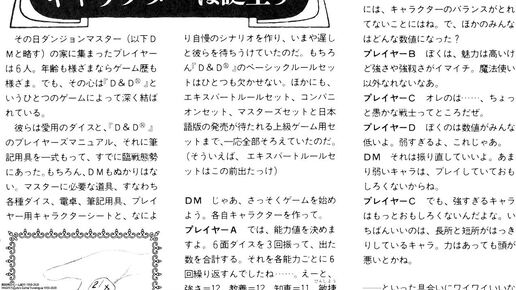 キャラクターは誕生す
その日ダンジョンマスター（以下Ｄ
Ｍと略す）の家に集まったプレイヤー
は６人。年齢も様ざまならゲーム歴も
様ざま。でも、その心は『Ｄ＆Ｄ®』と
いうひとつのゲームによって深く結ば
れている。
彼らは愛用のダイスと、『Ｄ＆Ｄ®』
のプレイヤーズマニュアル、それに筆
記用具を一式もって、すでに臨戦態勢
にあった。もちろん、ＤＭもぬかりはな
い。マスターに必要な道具、すなわち
各種ダイス、電卓、筆記用具、プレイ
ヤー用キャラクターシートと、なによ
り自慢のシナリオを作り、いまや遅し
と彼らを待ちうけていたのだ。もちろ
ん『Ｄ＆Ｄ®』のベーシックルールセッ
トはひとつも欠かせない。ほかにも、
エキスパートルールセット、コンパニ
オンセット、マスターズセットと日本
語版の発売が待たれる上級ゲーム用セ
ットまで、一応全部そろえていたのだ。
（そういえば、エキスパートルールセ
ットはこの前出たっけ）
ＤＭ　じゃあ、さっそくゲームを始め
よう。各自キャラクターを作って。
プレイヤーＡ　では、能力値を決めま
すよ。６面ダイスを３回振って、出た
数を合計する。それを各能力ごとに６
回繰り返すんでしたね……えーと、
強さ＝12、教養＝12、知恵＝11、敏捷
には、キャラクターのバランスがとれ
てないことにはね。で、ほかのみんな
はどんな数値になった？
プレイヤーＢ　ぼくは、魅力は高いけ
ど強さや強靱さがイマイチ。魔法使い
以外なれないなあ。
プレイヤーＣ　オレのは……、ちょっ
と愚かな戦士ってところだぜ。
プレイヤーＤ　ぼくのは数値がみんな
低いよ。弱すぎるよ、これじゃあ。
ＤＭ　それは振り直していいよ。あま
り弱いキャラは、プレイしていておも
しろくないからね。
プレイヤーＣ　でも、強すぎるキャラ
はもっとおもしろくないんだよな。い
ちばんいいのは、長所と短所がはっき
りしているキャラ。力はあっても頭が
悪いとかね。
――といった具合いにワイワイいいな